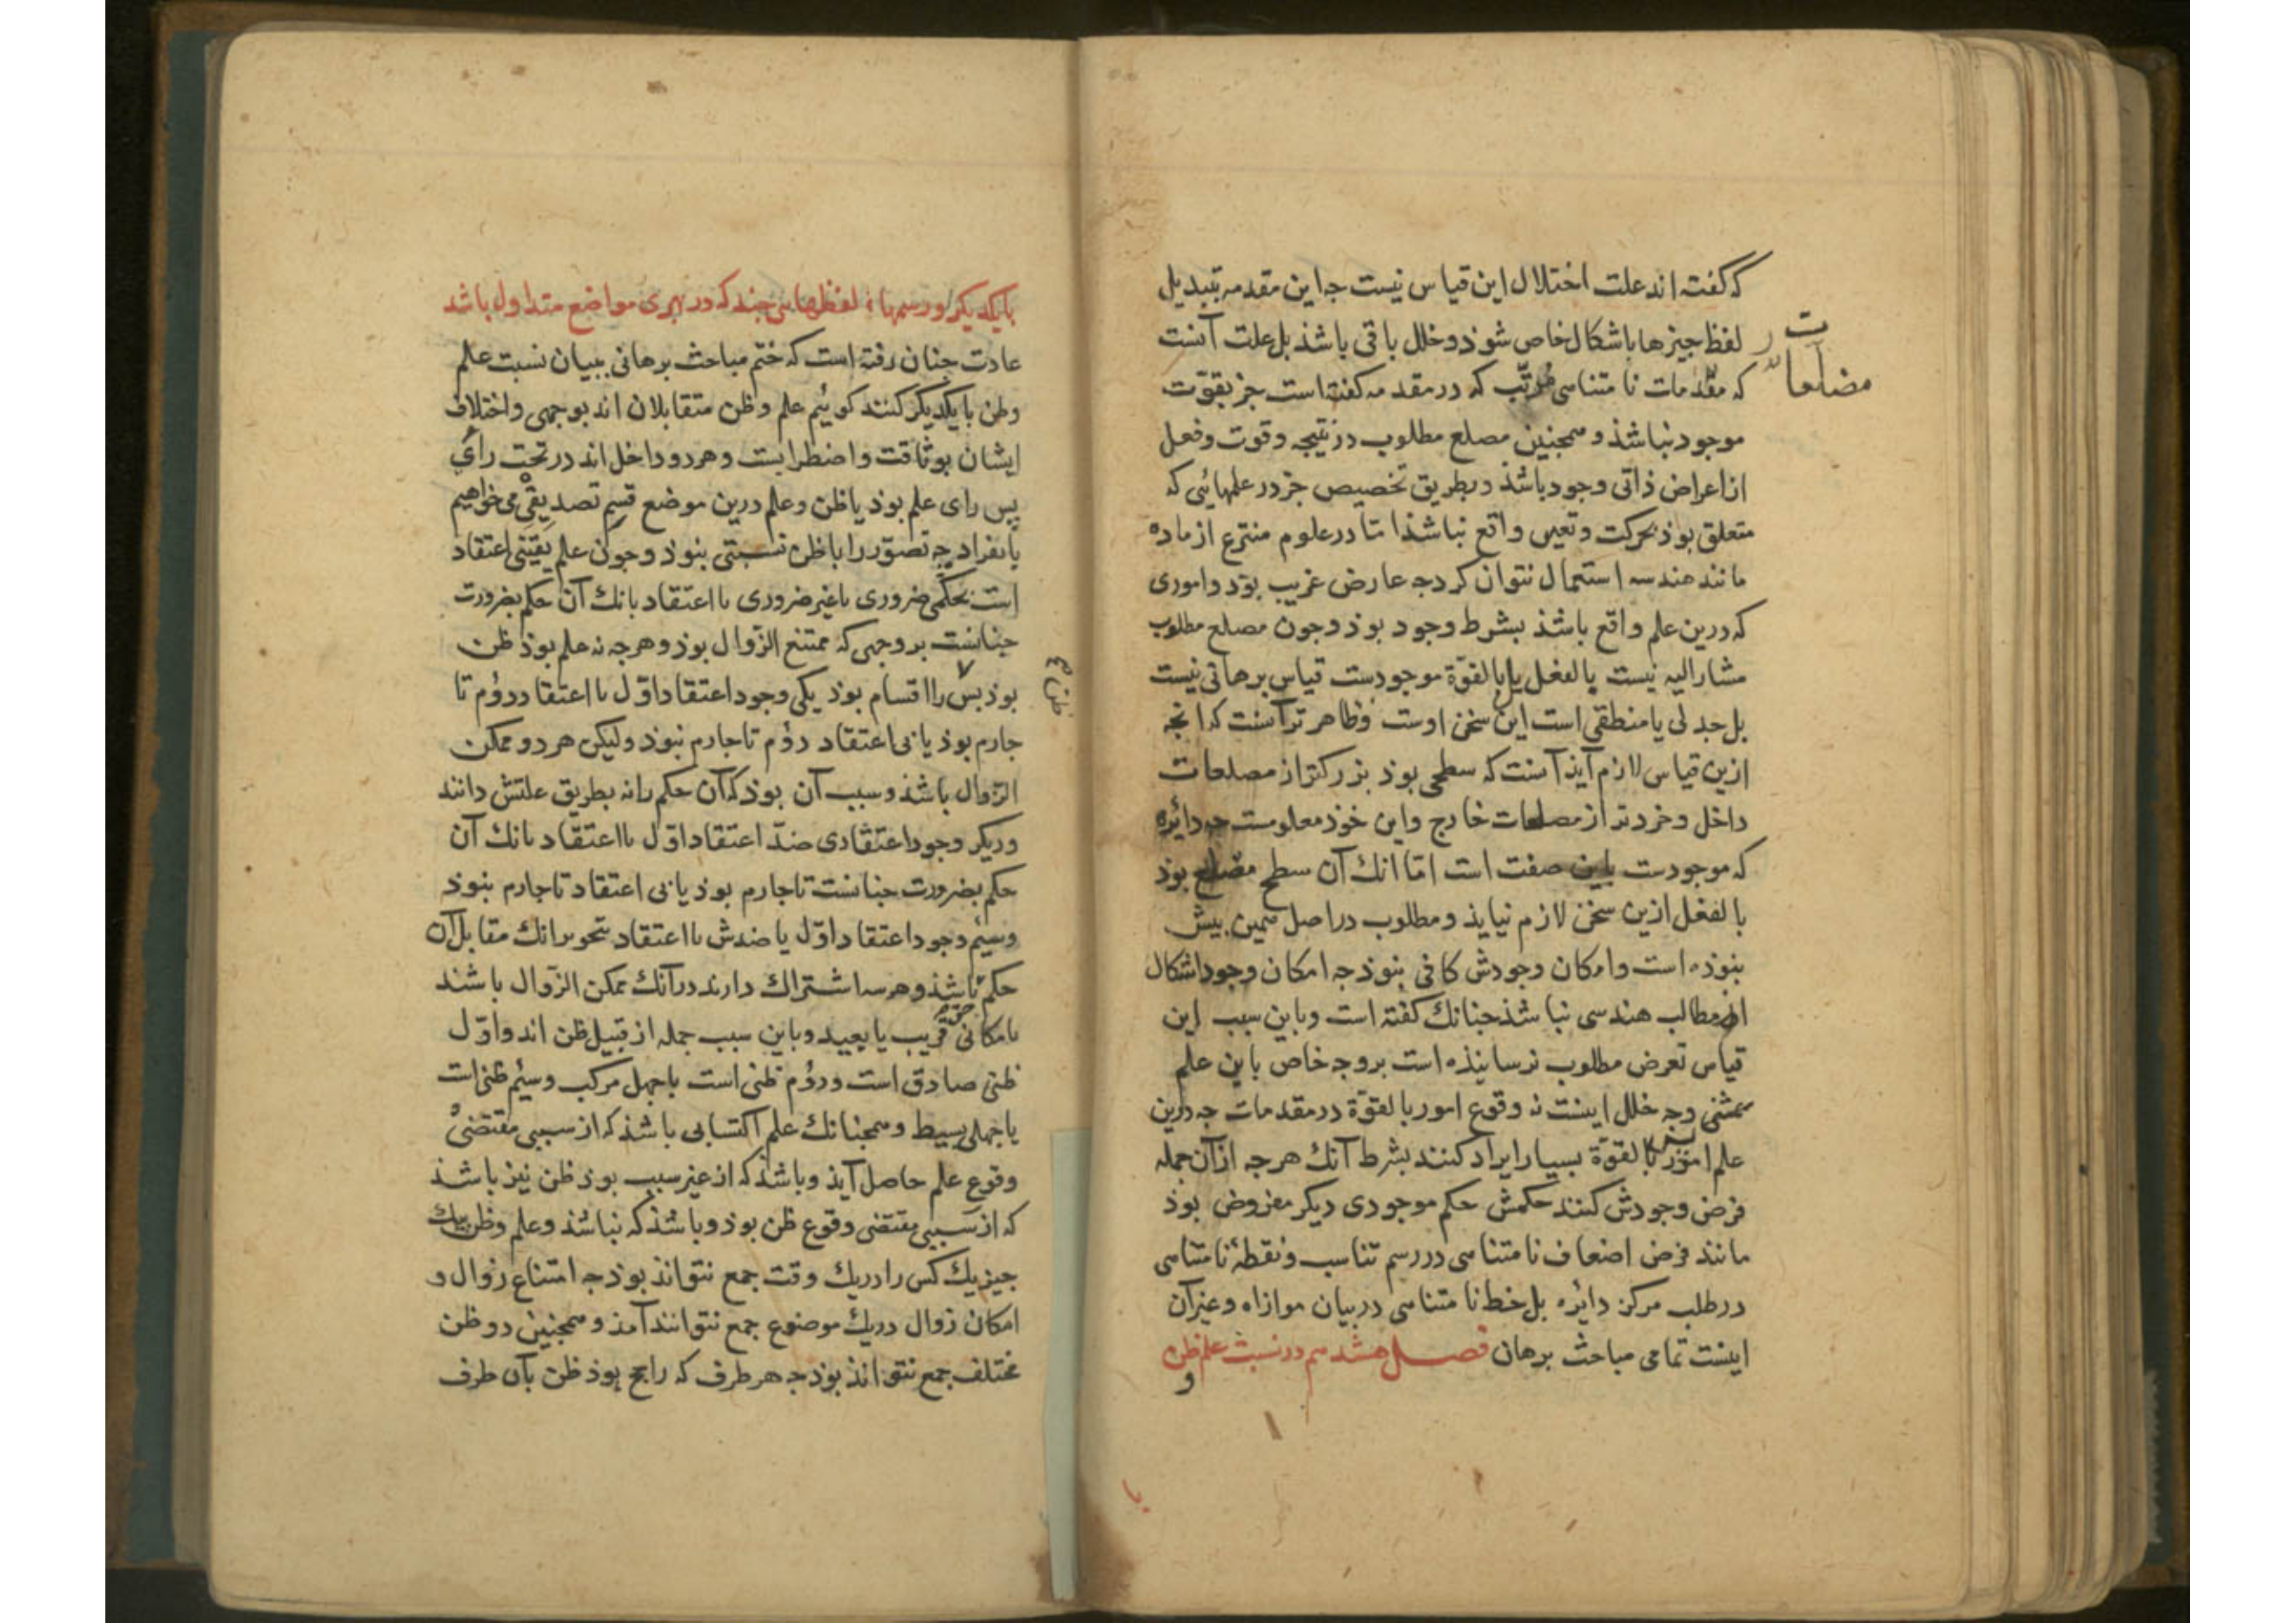 که گفته اند علت اختلال این قیاس نیست جه این مقدمه بتبدیل
لفظ جیزها باشکال خاص شوذ و خلل باقی باشذ بل علت آنست
که مقدمات نامتناهی مرتب که در مقدمه کفته است جز بقوت
موجود نباشذ و همجنین مضلع مطلوب در نتیجه و قوت و فعل
از اعراض ذاتی وجود باشذ و بطریق تخصیص جز در علمهائی که
متعلق بوذ بحرکت و تغیر واقع نباشذ اما در علوم منتزع از ماده
مانند هندسه استعمال نتوان کرد جه عارض غریب بوذ و اموری
که درین علم واقع باشذ بشرط وجود بوذ و جون مضلع مطلوب
مشار الیه نیست بالفعل بل بالقوة موجودست قیاس برهانی نیست
بل جدلی یا منطقی است این سخن اوست و ظاهرتر آنست که انجه
ازین قیاس لازم آیذ آنست که سطحی بوذ بزرکتر از مضلعات
داخل و خردتر از مضلعات خارج و این خوذ معلومست جه دائره
که موجودست باین صفت است اما انك آن سطح مضلع بوذ
بالفعل ازین سخن لازم نیایذ و مطلوب در اصل همین بیش
نبوذه است و امکان وجودش کافی نبوذ جه امکان وجود اشکال
از مطالب هندسی نباشذ جنانك کفته است و باین سبب این
قیاس تعرض مطلوب نرسانیذه است بر وجه خاص باین علم
وجه خلل اینست نه وقوع امور بالقوة در مقدمات جه درین
علم امور بالقوة بسیار ایراد کنند بشرط آنك هرجه از آن جمله
فرض وجودش کنند حکمش حکم موجودی دیکر مفروض بوذ
مانند فرض اضعاف نامتناهی در رسم تناسب و نقطهٔ نامتناهی
در طلب مرکز دائره بل خط نامتناهی در بیان موازاه و غیر آن
اینست تمامی مباحث برهان فصل هشدهم در نسبت علم ظن
و
مضلعات
بایکدیکر و رسمهاء لفظهایی جند که در بهری مواضع متداول باشد
عادت جنان رفته است که ختم مباحث برهانی ببیان نسبت علم
وظن بایکدیکر کنند کوئیم علم و ظن متقابلان اند بوجهی و اختلاف
ایشان بوثاقت و اضطرابست و هر دو داخل اند در تحت رأی
پس رای علم بوذ یا ظن و علم درین موضع قسم تصدیقی می خواهیم
بانفراد جه تصور را با ظن نسبتی نبوذ و جون علم یقینی اعتقاد
است بحکمی ضروری یا غیر ضروری با اعتقاد بانك آن حکم بضرورت
جنانست بر وجهی که ممتنع الزوال بوذ و هرجه نه علم بوذ ظن
بوذ بس را اقسام بوذ یکی وجود اعتقاد اول با اعتقاد دوم تا
جازم بوذ یا بی اعتقاد دوم تا جازم نبوذ و لیکن هر دو ممکن
الزوال باشذ و سبب آن بوذ که آن حکم را نه بطریق علتش دانند
ودیکر وجود اعتقادی ضد اعتقاد اول با اعتقاد بانك آن
حکم بضرورت جنانست تا جازم بوذ یا بی اعتقاد تا جازم نبوذ
وسیم وجود اعتقاد اول یا ضدش با اعتقاد تجویز انك مقابل آن
حکم باشذ و هر سه اشتراك دارند در آنك ممکن الزوال باشند
بامکانی قریب یا بعید و باین سبب جمله از قبیل ظن اند و اول
ظنی صادق است و دوم ظنی است باجهل مرکب و سیم ظنی است
یا جهلی بسیط و همجنانك علم اکتسابی باشذ که از سببی مقتضی
وقوع علم حاصل آیذ و باشذ که از غیر سبب بوذ ظن نیز باشذ
که از سببی مقتضی وقوع ظن بوذ و باشذ که نباشذ و علم و ظن بیك
جیز یك کس را در یك وقت جمع نتواند بوذ جه امتناع زوال و
امکان زوال در یك موضوع جمع نتوانند آمذ و همجنین دو ظن
مختلف جمع نتوانذ بوذ جه هر طرف که راجح بوذ ظن بآن طرف
ظن